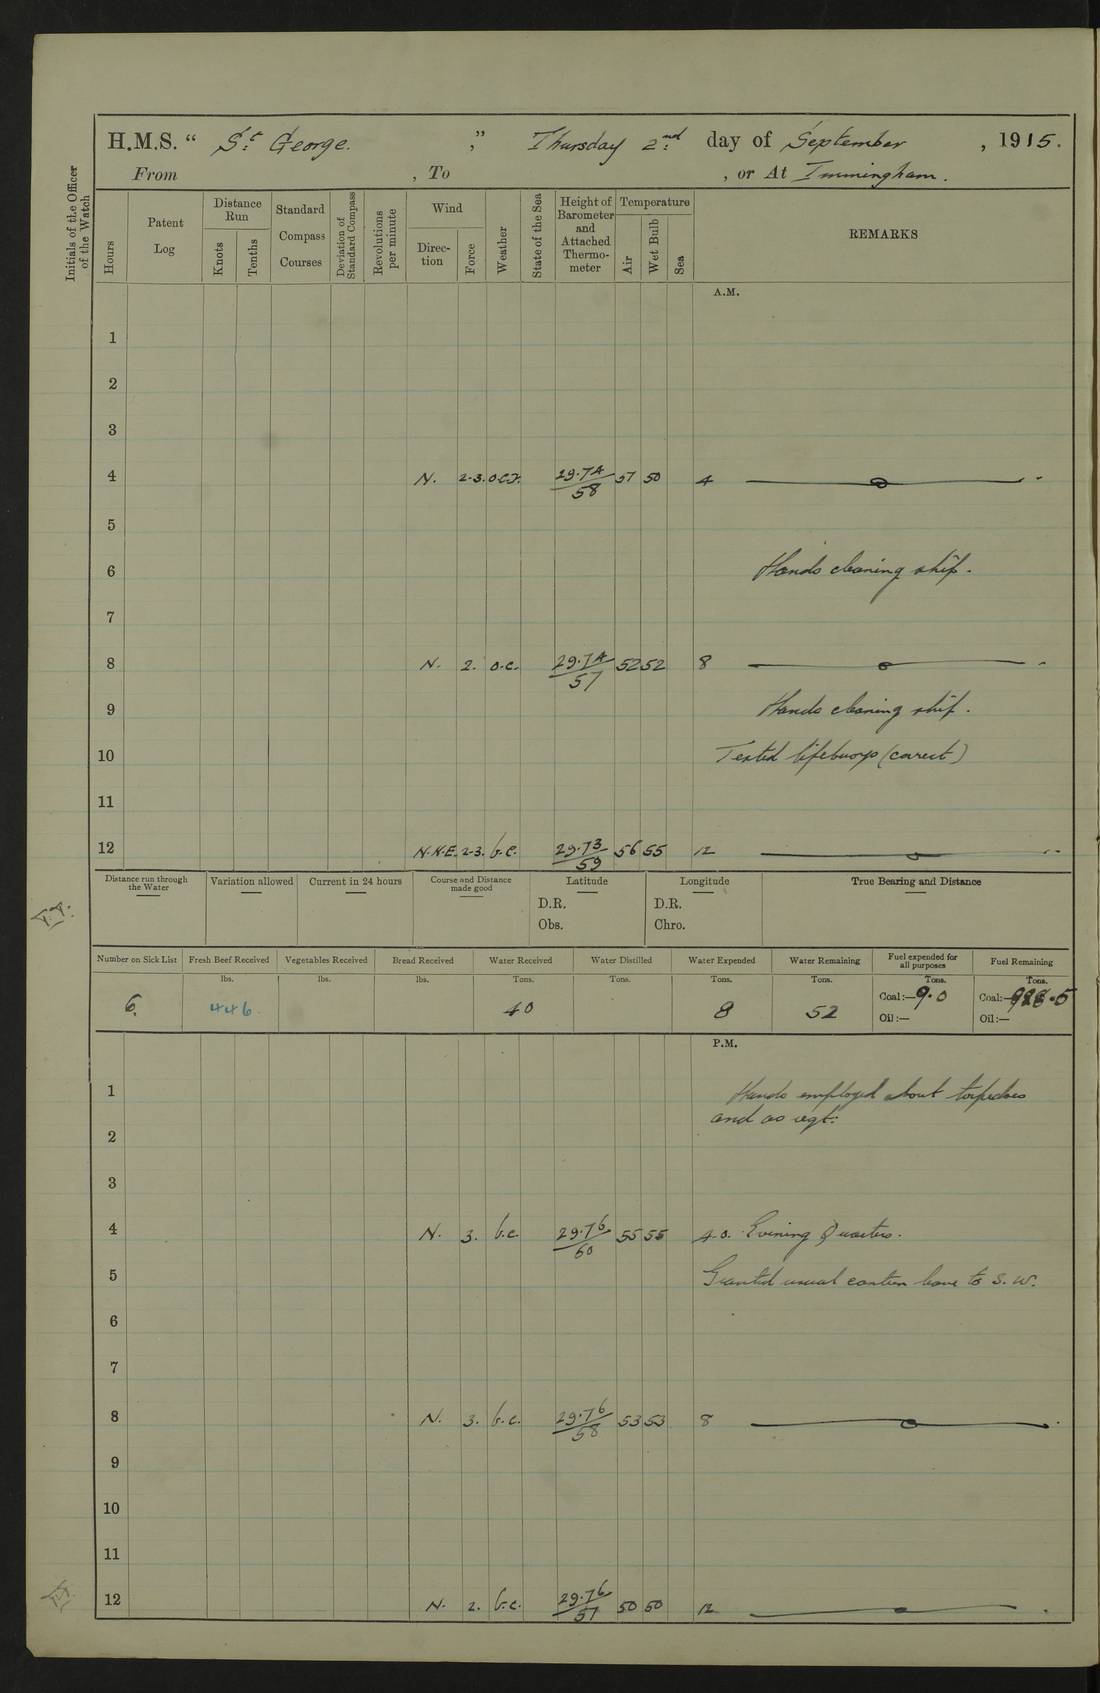 H.M.S. “ St. George. ,” Thursday 2nd. day of September , 1915.
From , To , or At Immingham.
Initials of the Officer of the Watch
Hours
Patent Log
Distance Run
Knots
Tenths
Standard Compass Courses
Deviation of Standard Compass
Revolutions per minute
Wind
Direc-tion
Force
Weather
State of the Sea
Height of Barometer and Attached Thermo-meter
Temperature
Air
Wet Bulb
Sea
REMARKS
A.M.
1
2
3
4 N. 2-3. 29.74/58 57 50 4
5
6 Hands cleaning ship.
7
8 N. 2. o.c. 29.74/57 52 52 8
9 Hands cleaning ship.
10 Tested lifebuoys (correct)
11
12 N.N.E. 2-3. b.c. 29.73/59 56 55 12
Distance run through the Water
Variation allowed
Current in 24 hours
Course and Distance made good
Latitude
D.R.
Obs.
Longitude
D.R.
Chro.
True Bearing and Distance
Number on Sick List
Fresh Beef Received
Vegetables Received
Bread Received
Water Received
Water Distilled
Water Expended
Water Remaining
Fuel expended for all purposes
Fuel Remaining
lbs. lbs. lbs. Tons. Tons. Tons. Tons. Tons. Tons.
6. 446 40 8 52 Coal:—9.0 Coal:—
Oil:— Oil:—
P.M.
1 Hands employed about torpedoes
and as reqt:
2
3
4 N. 3. b.c. 29.76/60 55 55 4.0. Evening Quarters.
5 Granted usual canteen leave to S.W.
6
7
8 N. 3. b.c. 29.76/58 53 53 8
9
10
11
12 N. 2. b.c. 29.76/57 50 50 12